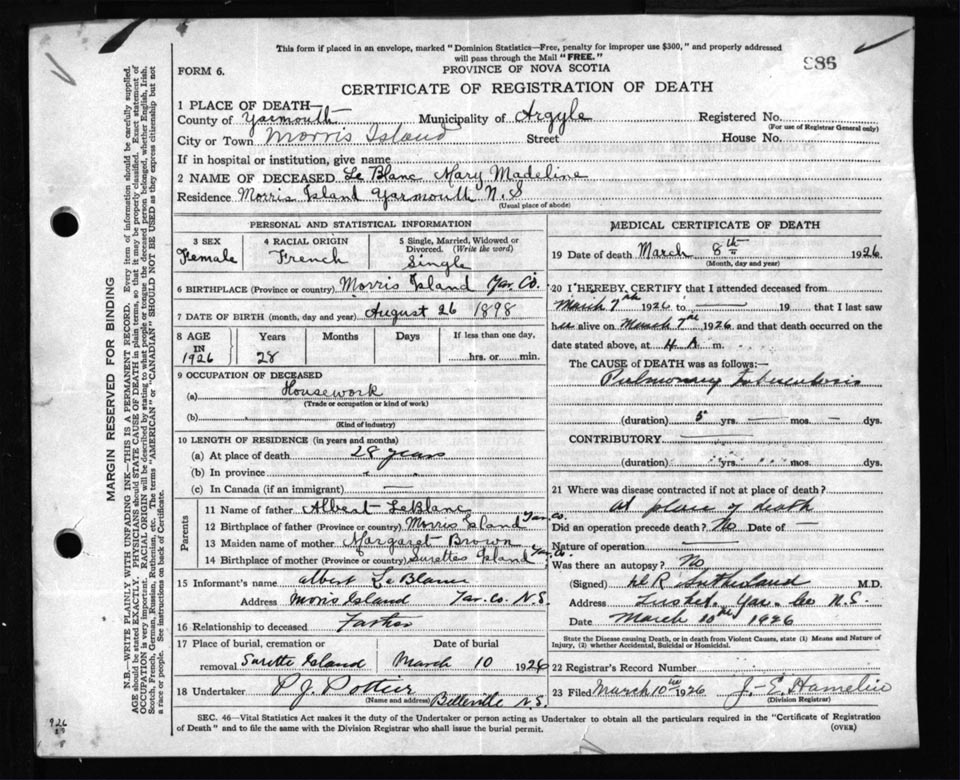 This form if placed in an envelope, marked "Dominion Statistics—Free, penalty for improper use $300," and properly addressed
will pass through the Mail "FREE."
986
FORM 6.
PROVINCE OF NOVA SCOTIA
CERTIFICATE OF REGISTRATION OF DEATH
1 PLACE OF DEATH—
County of Yarmouth Municipality of Argyle Registered No.
(For use of Registrar General only)
City or Town Morris Island Street House No.
If in hospital or institution, give name
2 NAME OF DECEASED Le Blanc Mary Madeline
Residence Morris Island Yarmouth N.S
(Usual place of abode)
PERSONAL AND STATISTICAL INFORMATION
3 SEX 4 RACIAL ORIGIN 5 Single, Married, Widowed or
Divorced. (Write the word)
Female French Single
6 BIRTHPLACE (Province or country) Morris Island Yar. Co.
7 DATE OF BIRTH (month, day and year) August 26 1898
8 AGE Years Months Days If less than one day,
IN
1926 28 hrs. or min.
9 OCCUPATION OF DECEASED
(a) Housework
(Trade or occupation or kind of work)
(b)
(Kind of industry)
10 LENGTH OF RESIDENCE (in years and months)
(a) At place of death 28 years
(b) In province " "
(c) In Canada (if an immigrant) —
Parents
11 Name of father Albert LeBlanc
12 Birthplace of father (Province or country) Morris Island Yar. Co.
13 Maiden name of mother Margaret Brown
14 Birthplace of mother (Province or country) Surettes Island Yar. Co.
15 Informant's name Albert Le Blanc
Address Moris Island Yar. Co. N.S.
16 Relationship to deceased Father
17 Place of burial, cremation or Date of burial
removal Surette Island March 10 1926
18 Undertaker P J. Pottier
(Name and address) Belleville N.S.
MEDICAL CERTIFICATE OF DEATH
19 Date of death March 8th 1926
(Month, day and year)
20 I HEREBY CERTIFY that I attended deceased from
March 7th 1926 to — 19 — that I last saw
her alive on March 7th 1926 and that death occurred on the
date stated above, at 4 A m.
The CAUSE OF DEATH was as follows:—
Pulmonary tuberculosis
(duration) 5 yrs. — mos. — dys.
CONTRIBUTORY
(duration) yrs. mos. dys.
21 Where was disease contracted if not at place of death?
At place of death
Did an operation precede death? No Date of —
Nature of operation —
Was there an autopsy? No
(Signed) R Sutherland M.D.
Address Tusket, Yar. Co N.S.
Date March 10th 1926
State the Disease causing Death, or in death from Violent Causes, state (1) Means and Nature of
Injury, (2) whether Accidental, Suicidal or Homicidal.
22 Registrar's Record Number
23 Filed March 10th 1926 J.-E. Hamelin
(Division Registrar)
SEC. 46—Vital Statistics Act makes it the duty of the Undertaker or person acting as Undertaker to obtain all the particulars required in the "Certificate of Registration
of Death" and to file the same with the Division Registrar who shall issue the burial permit. (OVER)
MARGIN RESERVED FOR BINDING
N.B.—WRITE PLAINLY WITH UNFADING INK—THIS IS A PERMANENT RECORD. Every item of information should be carefully supplied.
AGE should be stated EXACTLY. PHYSICIANS should STATE CAUSE OF DEATH in plain terms, so that it may be properly classified. Exact statement of
OCCUPATION is very important. RACIAL ORIGIN will be described by stating to what people or tongue the deceased person belonged, whether English, Irish,
Scotch, French, German, Russian, Ruthenian, etc. The terms "AMERICAN" or "CANADIAN" SHOULD NOT BE USED as they express citizenship but not
a race or people. See instructions on back of Certificate.